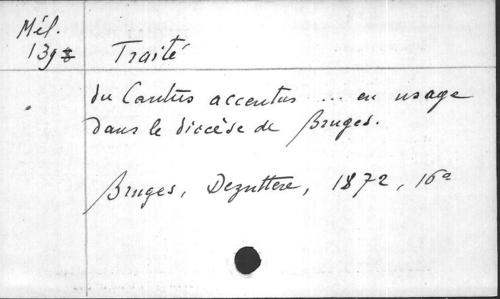 Mél.
139 Traité
du Cantus accentus ... en usage
dans le diocèse de Bruges.
Bruges, Dezuttere, 1872, 16º